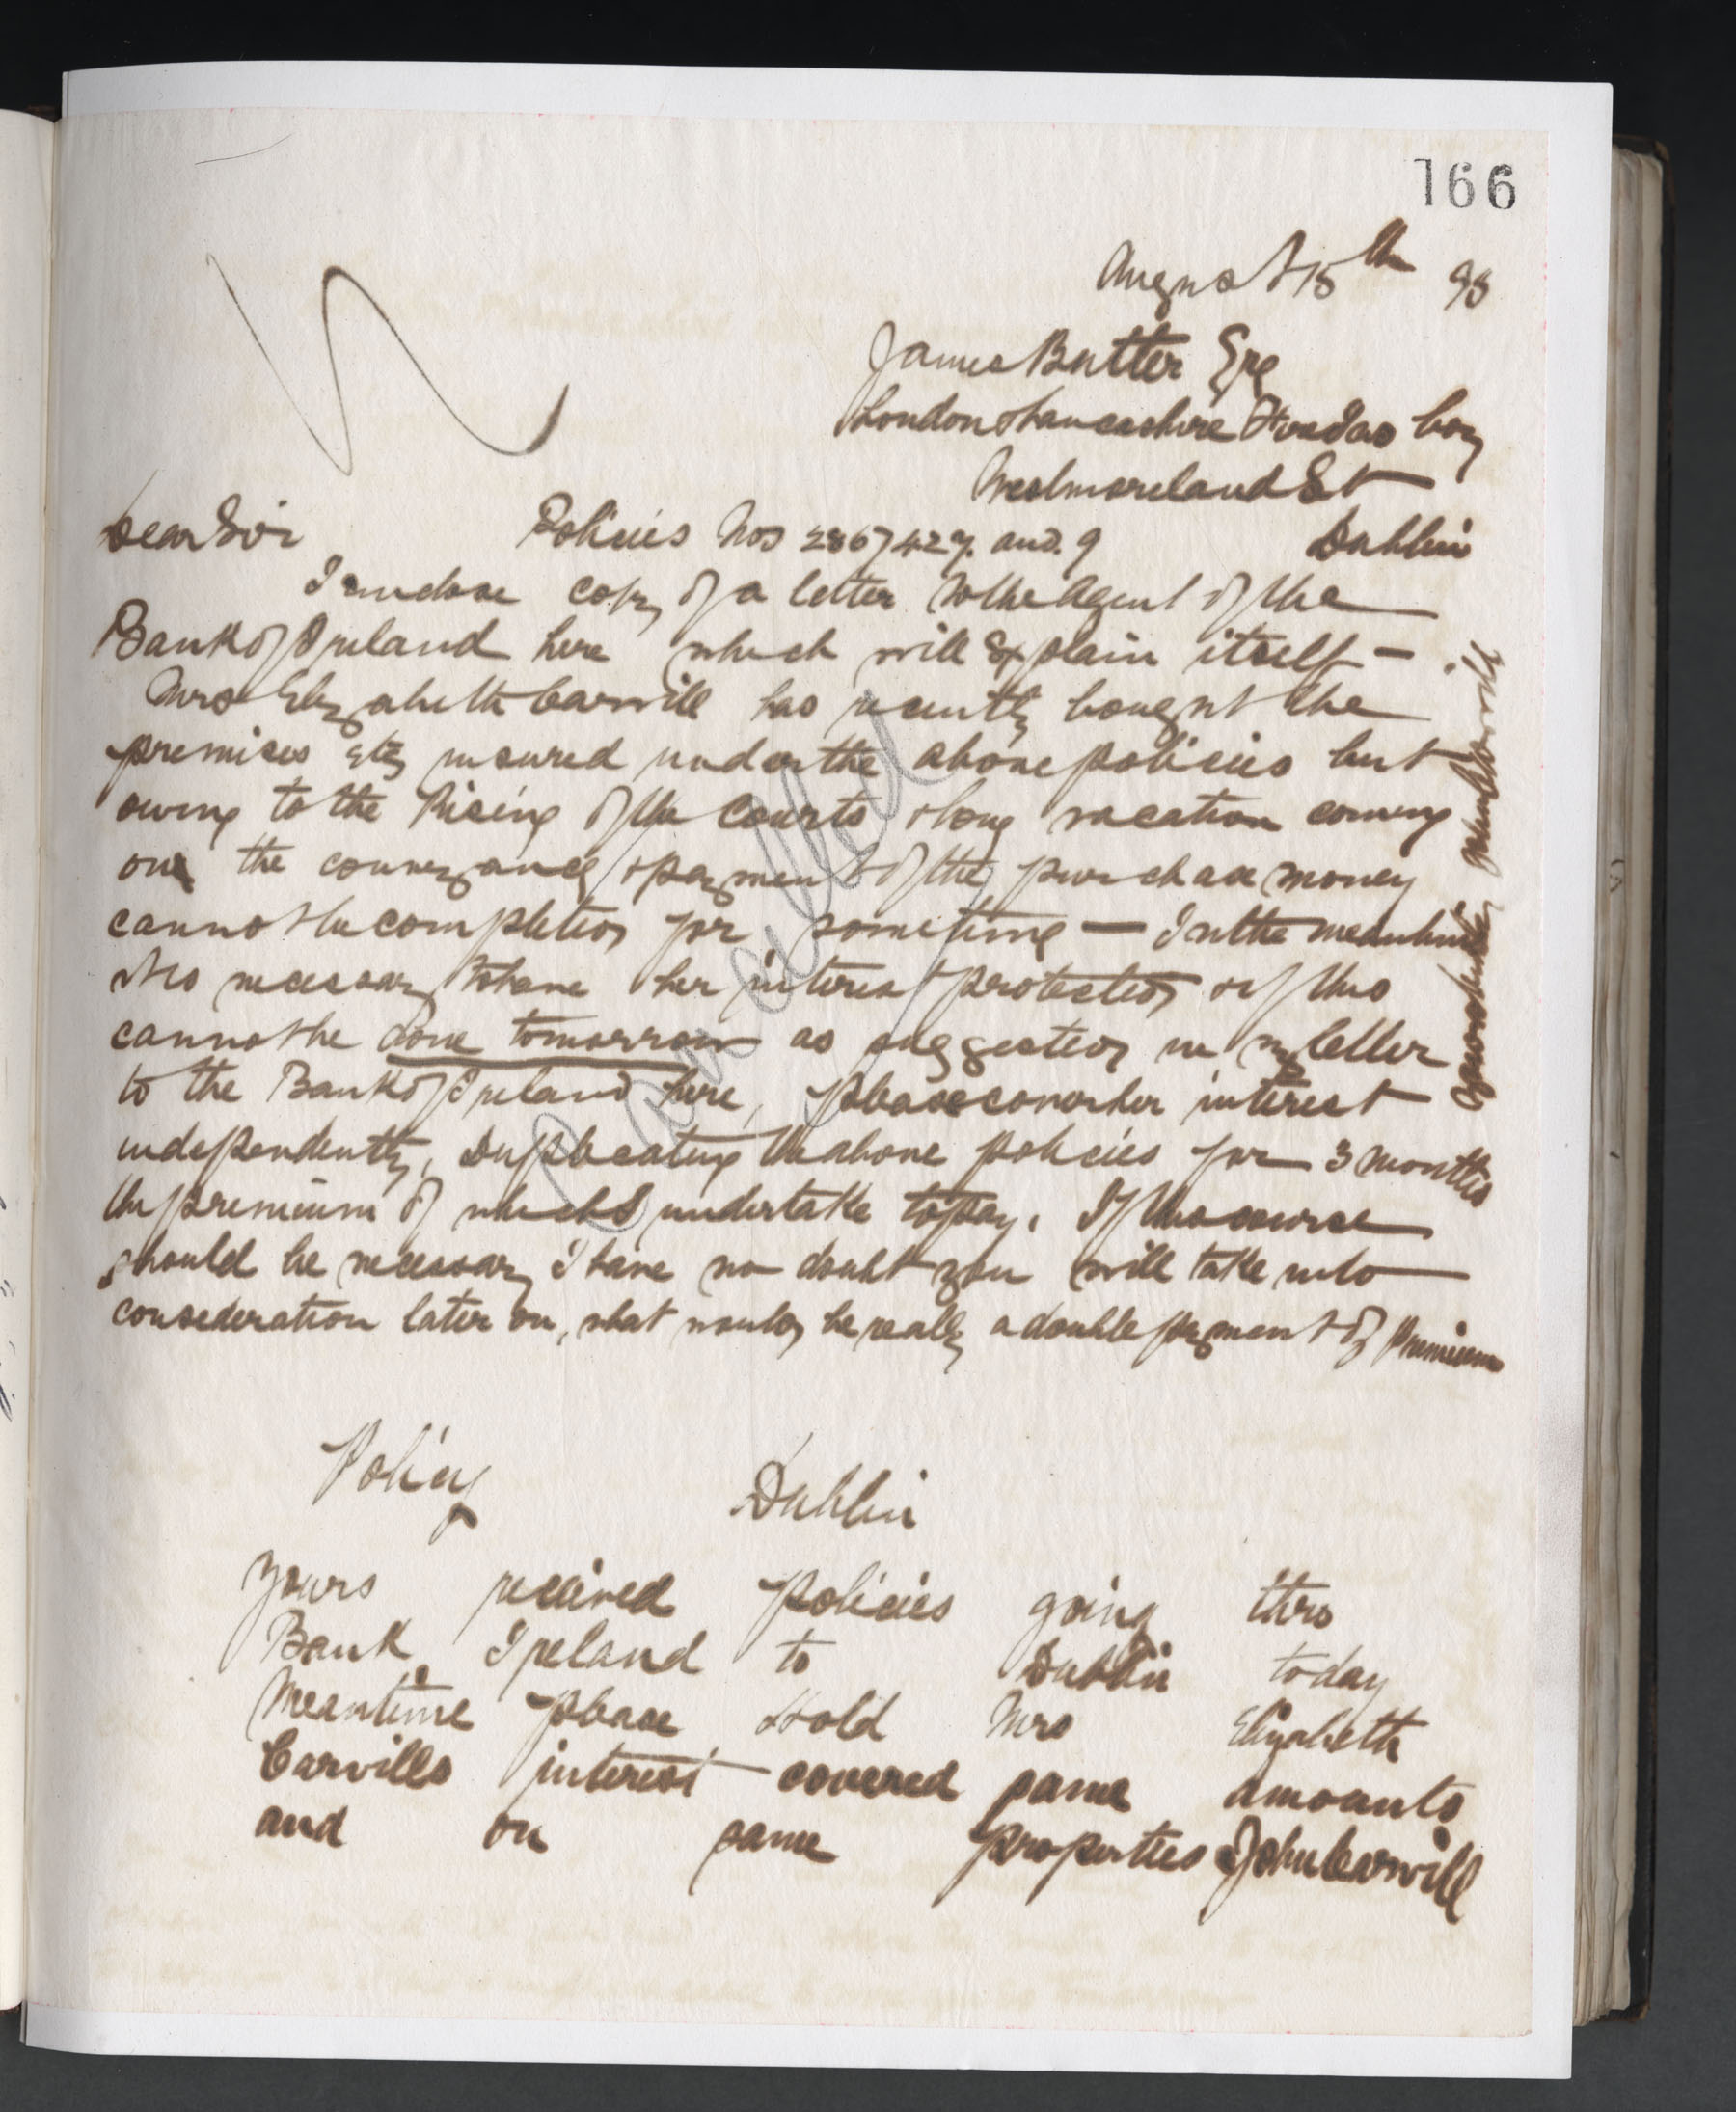 166
August 15th 98
James Butter Esq
London & Lancashire Fire Ins Coy
Westmoreland St
Dublin
Dear Sir Policies Nos 2867427 and 9
I enclose copy of a letter to the Agent of the
Bank of Ireland here which will Explain itself -
Mrs Elizabeth Carvill has recently bought the
premises etc insured under the above policies but
owing to the Rising of the Courts & long vacation coming
on the conveyance & payment of the purchase money
cannot be completed for sometime — In the meantime
it is necessary to have her interest protected & if this
cannot be done tomorrow as suggested in my letter
to the Bank of Ireland here, please cover her interest
independently, Duplicating the above policies for 3 months
the premium of which I undertake to pay. If this course
should be necessary I have no doubt you will take into
consideration later on, what would be really a double payment of Premium
Yours truly John Carvill
Cancelled
Policy Dublin
Yours received policies going thro
Bank Ireland to Dublin today
Meantime please Hold Mrs Elizabeth
Carvills interest covered same amounts
and on same properties John Carvill